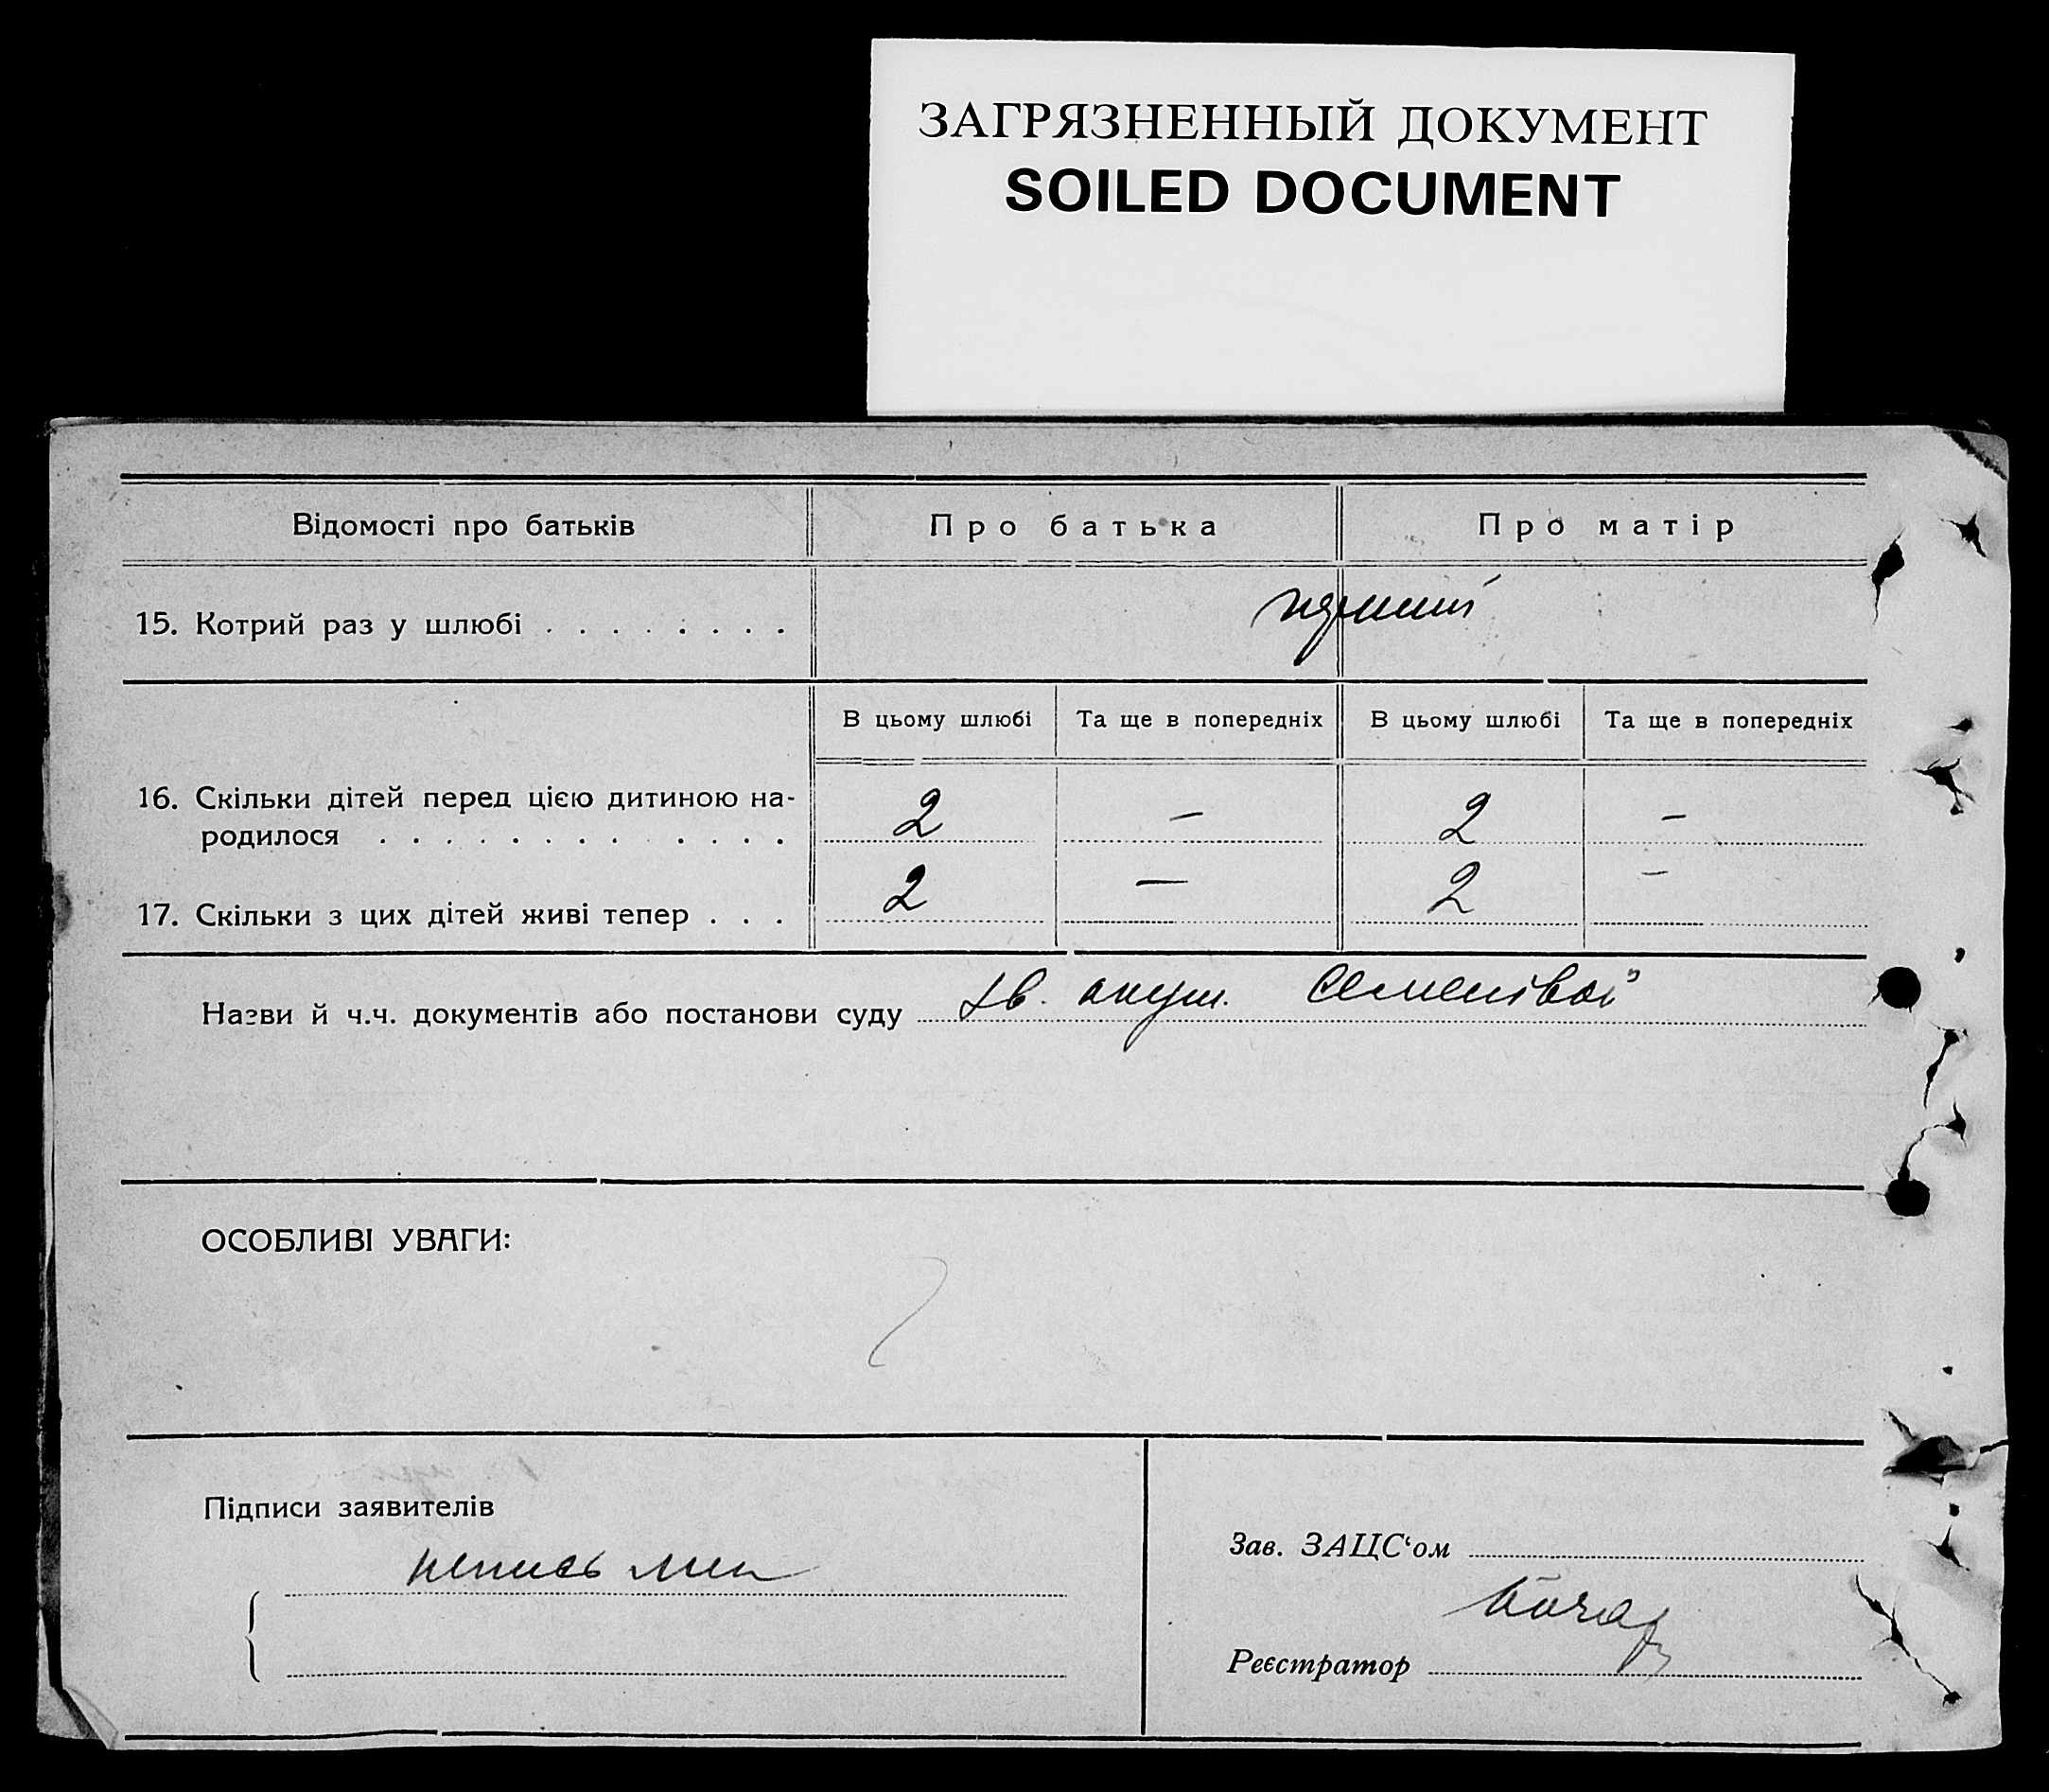 ЗАГРЯЗНЕННЫЙ ДОКУМЕНТ
SOILED DOCUMENT
Відомості про батьків Про батька Про матір
15. Котрий раз у шлюбі . . . . . . . .
В цьому шлюбі Та ще в попередніх В цьому шлюбі Та ще в попередніх
16. Скільки дітей перед цією дитиною на-
родилося . . . . . . . . . . . . . 2 — 2 —
17. Скільки з цих дітей живі тепер . . . 2 — 2 —
Назви й ч.ч. документів або постанови суду акуш.
ОСОБЛИВІ УВАГИ:
Підписи заявителів
Зав. ЗАЦС‘ом
неписьмен
Реєстратор